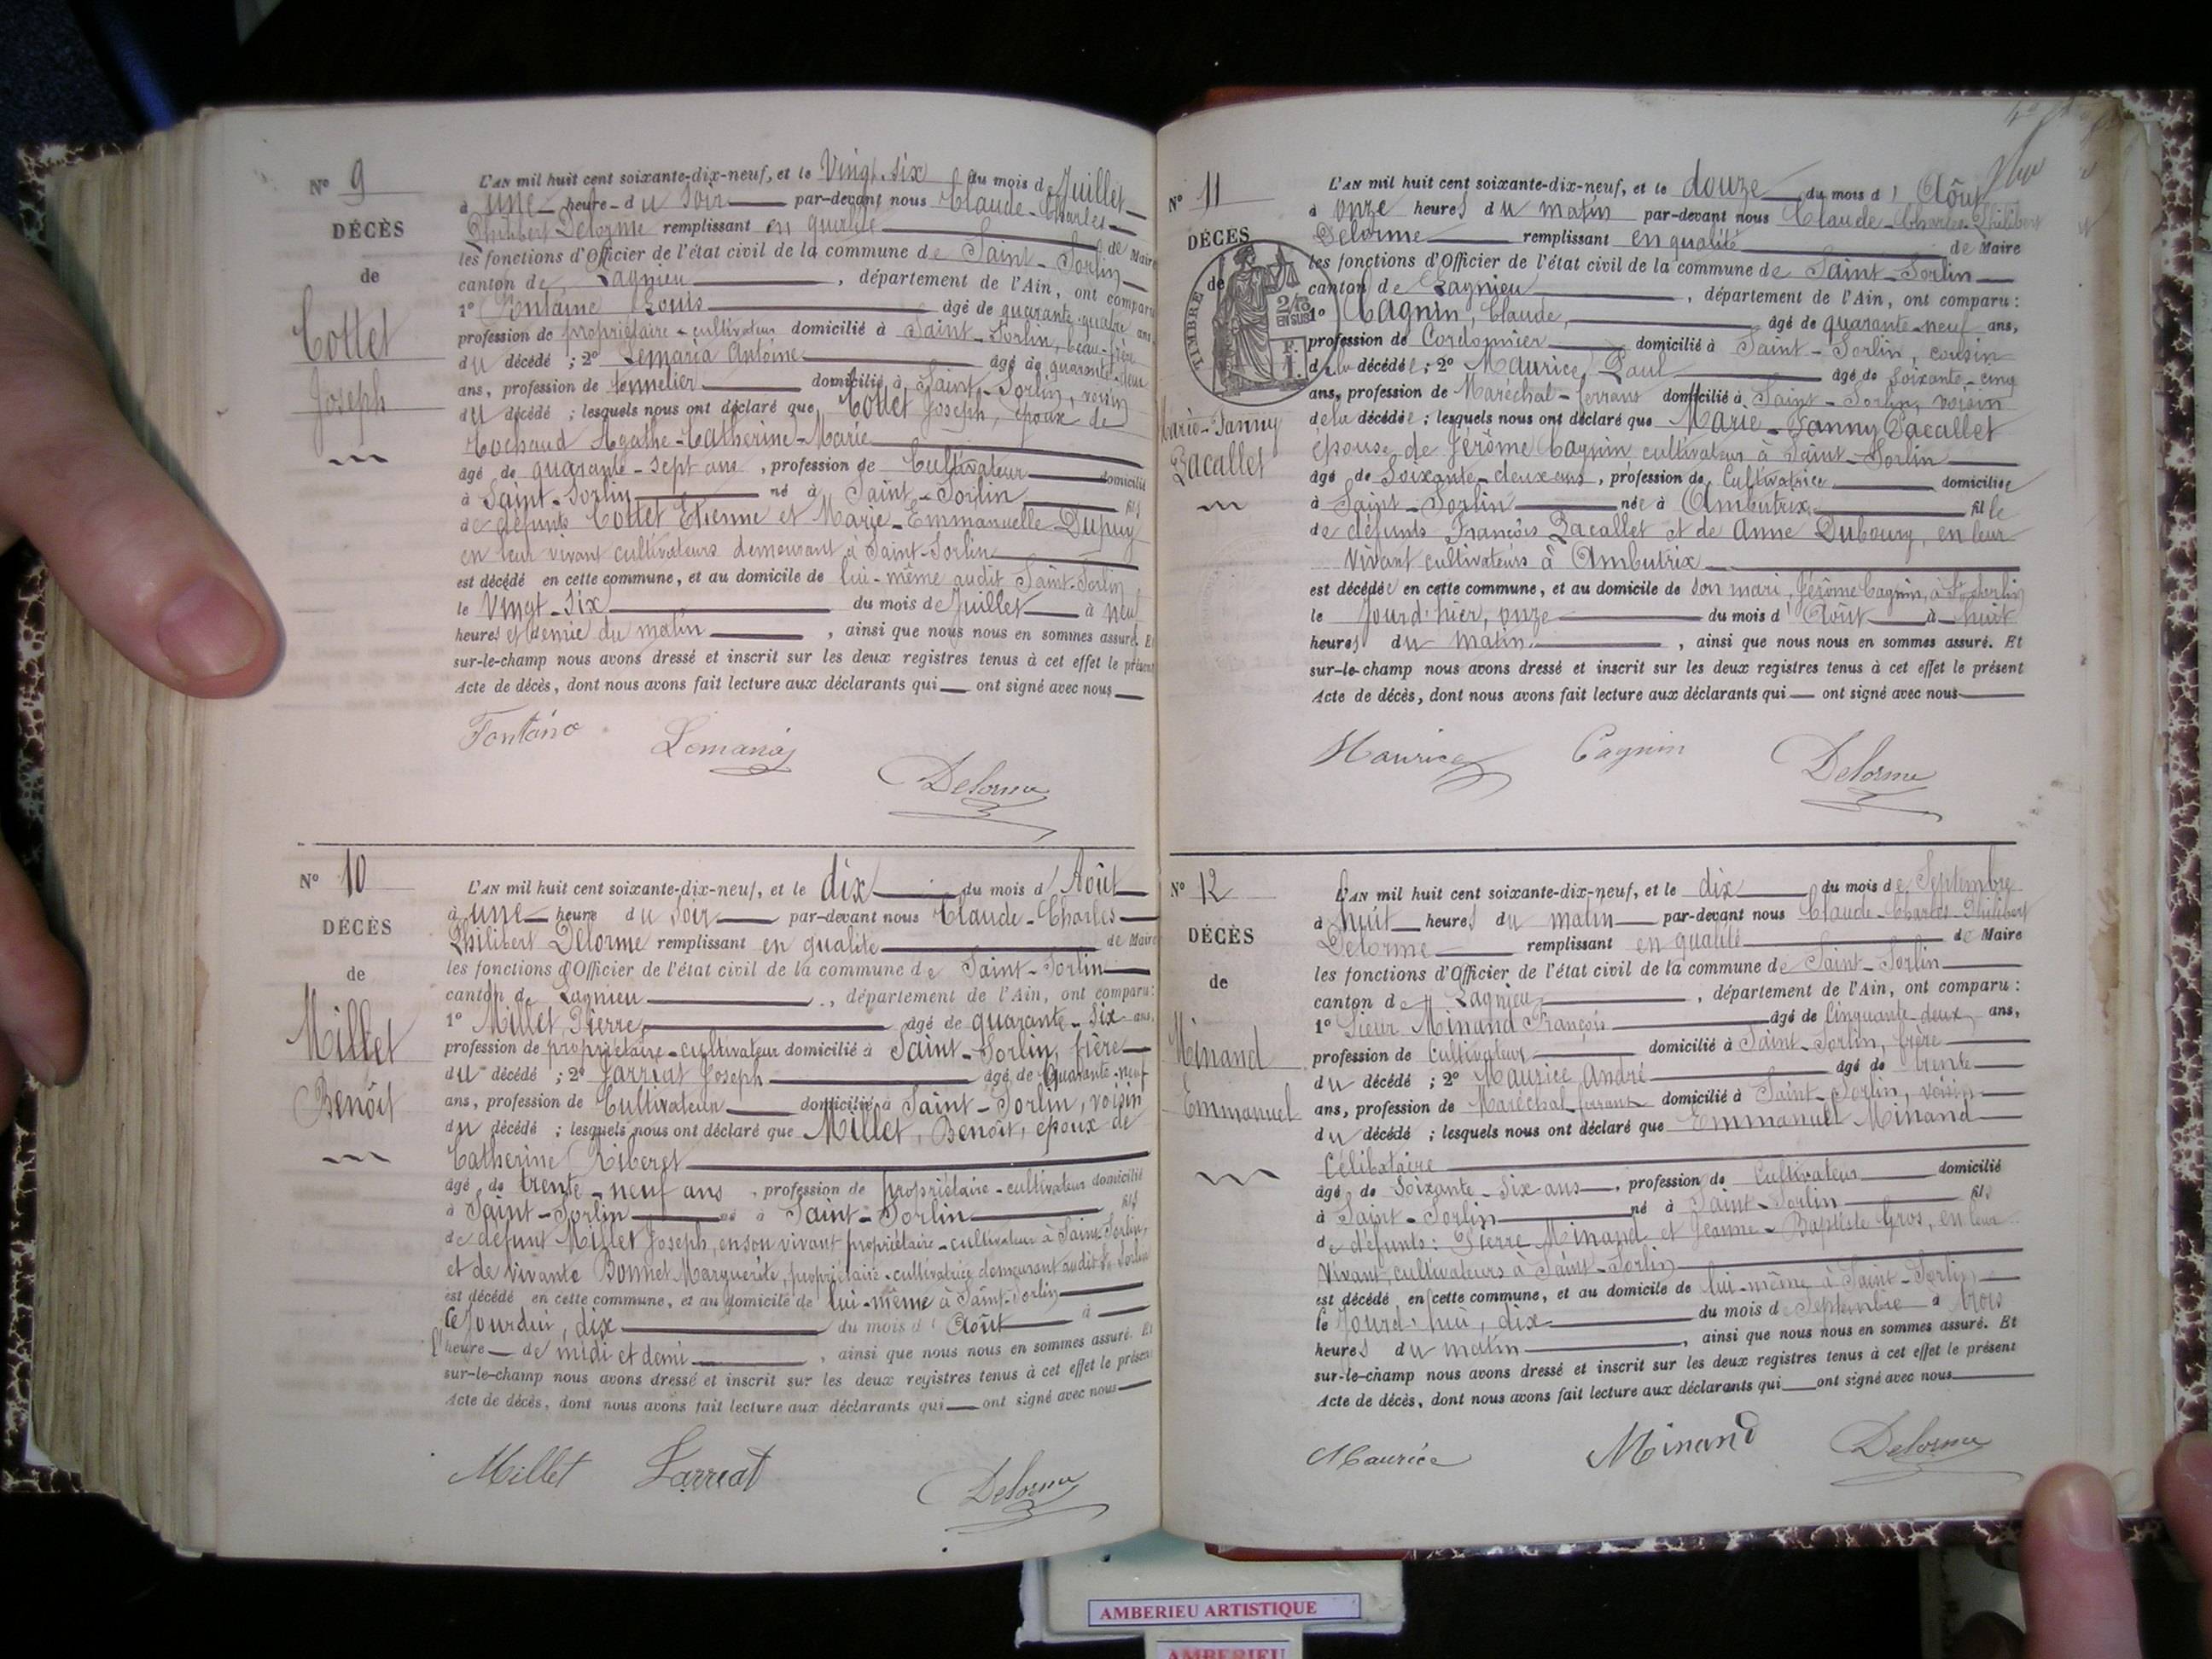 N° 9
DÉCÈS
de
Cottet
Joseph
L'AN mil huit cent soixante-dix-neuf, et le Vingt-six du mois de Juillet
à une heure du soir par-devant nous Claude-Charles-
Philibert Delorme remplissant en qualité de Maire
les fonctions d'Officier de l'état civil de la commune de Saint-Sorlin
canton de Lagnieu, département de l'Ain, ont comparu
1° Fontaine Louis âgé de quarante-quatre ans
profession de propriétaire-cultivateur domicilié à Saint-Sorlin, beau-frère
du décédé ; 2° Lemaria Antoine âgé de quarante-deux
ans, profession de tonnelier domicilié à Saint-Sorlin, voisin
du décédé ; lesquels nous ont déclaré que Cottet Joseph, époux de
Cochaud Agathe-Catherine-Marie
âgé de quarante-sept ans, profession de Cultivateur domicilié
à Saint-Sorlin né à Saint-Sorlin fils
de défunts Cottet Etienne et Marie-Emmanuelle Dupuy
en leur vivant cultivateurs demeurant à Saint-Sorlin
est décédé en cette commune, et au domicile de lui-même audit Saint-Sorlin
le Vingt-six du mois de Juillet à neuf
heures et demie du matin, ainsi que nous nous en sommes assuré. Et
sur-le-champ nous avons dressé et inscrit sur les deux registres tenus à cet effet le présent
Acte de décès, dont nous avons fait lecture aux déclarants qui ont signé avec nous
Fontaine Lemaria
Delorme
N° 10
DÉCÈS
de
Millet
Benoît
L'AN mil huit cent soixante-dix-neuf, et le dix du mois d'Août
à une heure du soir par-devant nous Claude-Charles
Philibert Delorme remplissant en qualité de Maire
les fonctions d'Officier de l'état civil de la commune de Saint-Sorlin
canton de Lagnieu, département de l'Ain, ont comparu :
1° Millet Pierre âgé de quarante-six ans,
profession de propriétaire-cultivateur domicilié à Saint-Sorlin, frère
du décédé ; 2° Larriat Joseph âgé de Quarante-neuf
ans, profession de Cultivateur domicilié à Saint-Sorlin, voisin
du décédé ; lesquels nous ont déclaré que Millet, Benoît, époux de
Catherine Riberet
âgé de trente-neuf ans, profession de propriétaire-cultivateur domicilié
à Saint-Sorlin né à Saint-Sorlin fils
de défunt Millet Joseph, en son vivant propriétaire-cultivateur à Saint-Sorlin,
et de vivante Bonnet Marguerite, propriétaire-cultivatrice demeurant audit St Sorlin
est décédé en cette commune, et au domicile de lui-même à Saint-Sorlin
le Jourdui, dix du mois d'Août à
l'heure de midi et demi, ainsi que nous nous en sommes assuré. Et
sur-le-champ nous avons dressé et inscrit sur les deux registres tenus à cet effet le présent
Acte de décès, dont nous avons fait lecture aux déclarants qui ont signé avec nous
Millet Larriat
Delorme
N° 11
DÉCÈS
de
TIMBRE
2/10
EN SUS
Marie-Fanny
Lacallet
L'AN mil huit cent soixante-dix-neuf, et le douze du mois d'Août
à onze heures du matin par-devant nous Claude-Charles-Philibert
Delorme remplissant en qualité de Maire
les fonctions d'Officier de l'état civil de la commune de Saint-Sorlin
canton de Lagnieu, département de l'Ain, ont comparu :
1° Cagnin, Claude, âgé de quarante-neuf ans,
profession de Cordonnier domicilié à Saint-Sorlin, cousin
de la décédée ; 2° Maurice, Paul âgé de soixante-cinq
ans, profession de Maréchal-ferrant domicilié à Saint-Sorlin, voisin
de la décédée ; lesquels nous ont déclaré que Marie-Fanny Lacallet
épouse de Jérôme Cagnin cultivateur à Saint-Sorlin
âgé de Soixante-deux ans, profession de Cultivatrice domiciliée
à Saint-Sorlin née à Ambutrix fille
de défunts François Lacallet et de Anne Dubourg, en leur
vivant cultivateurs à Ambutrix
est décédée en cette commune, et au domicile de son mari, Jérôme Cagnin, à St Sorlin
le Jourd'hier, onze du mois d'Août à huit
heures du matin, ainsi que nous nous en sommes assuré. Et
sur-le-champ nous avons dressé et inscrit sur les deux registres tenus à cet effet le présent
Acte de décès, dont nous avons fait lecture aux déclarants qui ont signé avec nous
Maurice Cagnin Delorme
N° 12
DÉCÈS
de
Minand
Emmanuel
L'AN mil huit cent soixante-dix-neuf, et le dix du mois de Septembre
à huit heures du matin par-devant nous Claude-Charles-Philibert
Delorme remplissant en qualité de Maire
les fonctions d'Officier de l'état civil de la commune de Saint-Sorlin
canton de Lagnieu, département de l'Ain, ont comparu :
1° Sieur Minand François âgé de Cinquante-deux ans,
profession de Cultivateur domicilié à Saint-Sorlin, frère
du décédé ; 2° Maurice André âgé de trente
ans, profession de Maréchal ferrant domicilié à Saint-Sorlin, voisin
du décédé ; lesquels nous ont déclaré que Emmanuel Minand
Célibataire
âgé de Soixante-six ans, profession de Cultivateur domicilié
à Saint-Sorlin né à Saint-Sorlin fils
de défunts : Pierre Minand et Jeanne-Baptiste Gros, en leur
Vivant, cultivateurs à Saint-Sorlin
est décédé en cette commune, et au domicile de lui-même à Saint-Sorlin
le Jourd'hui, dix du mois de Septembre à trois
heures du matin, ainsi que nous nous en sommes assuré. Et
sur-le-champ nous avons dressé et inscrit sur les deux registres tenus à cet effet le présent
Acte de décès, dont nous avons fait lecture aux déclarants qui ont signé avec nous
Maurice Minand Delorme
AMBERIEU ARTISTIQUE
AMBERIEU